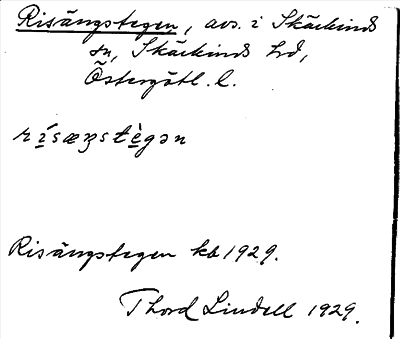 Risängstegen, avs. i Skärkinds
sn, Skärkinds hd,
Östergötl. l.
rísæŋstègən
Risängstegen kb 1929.
Thord Lindell 1929.